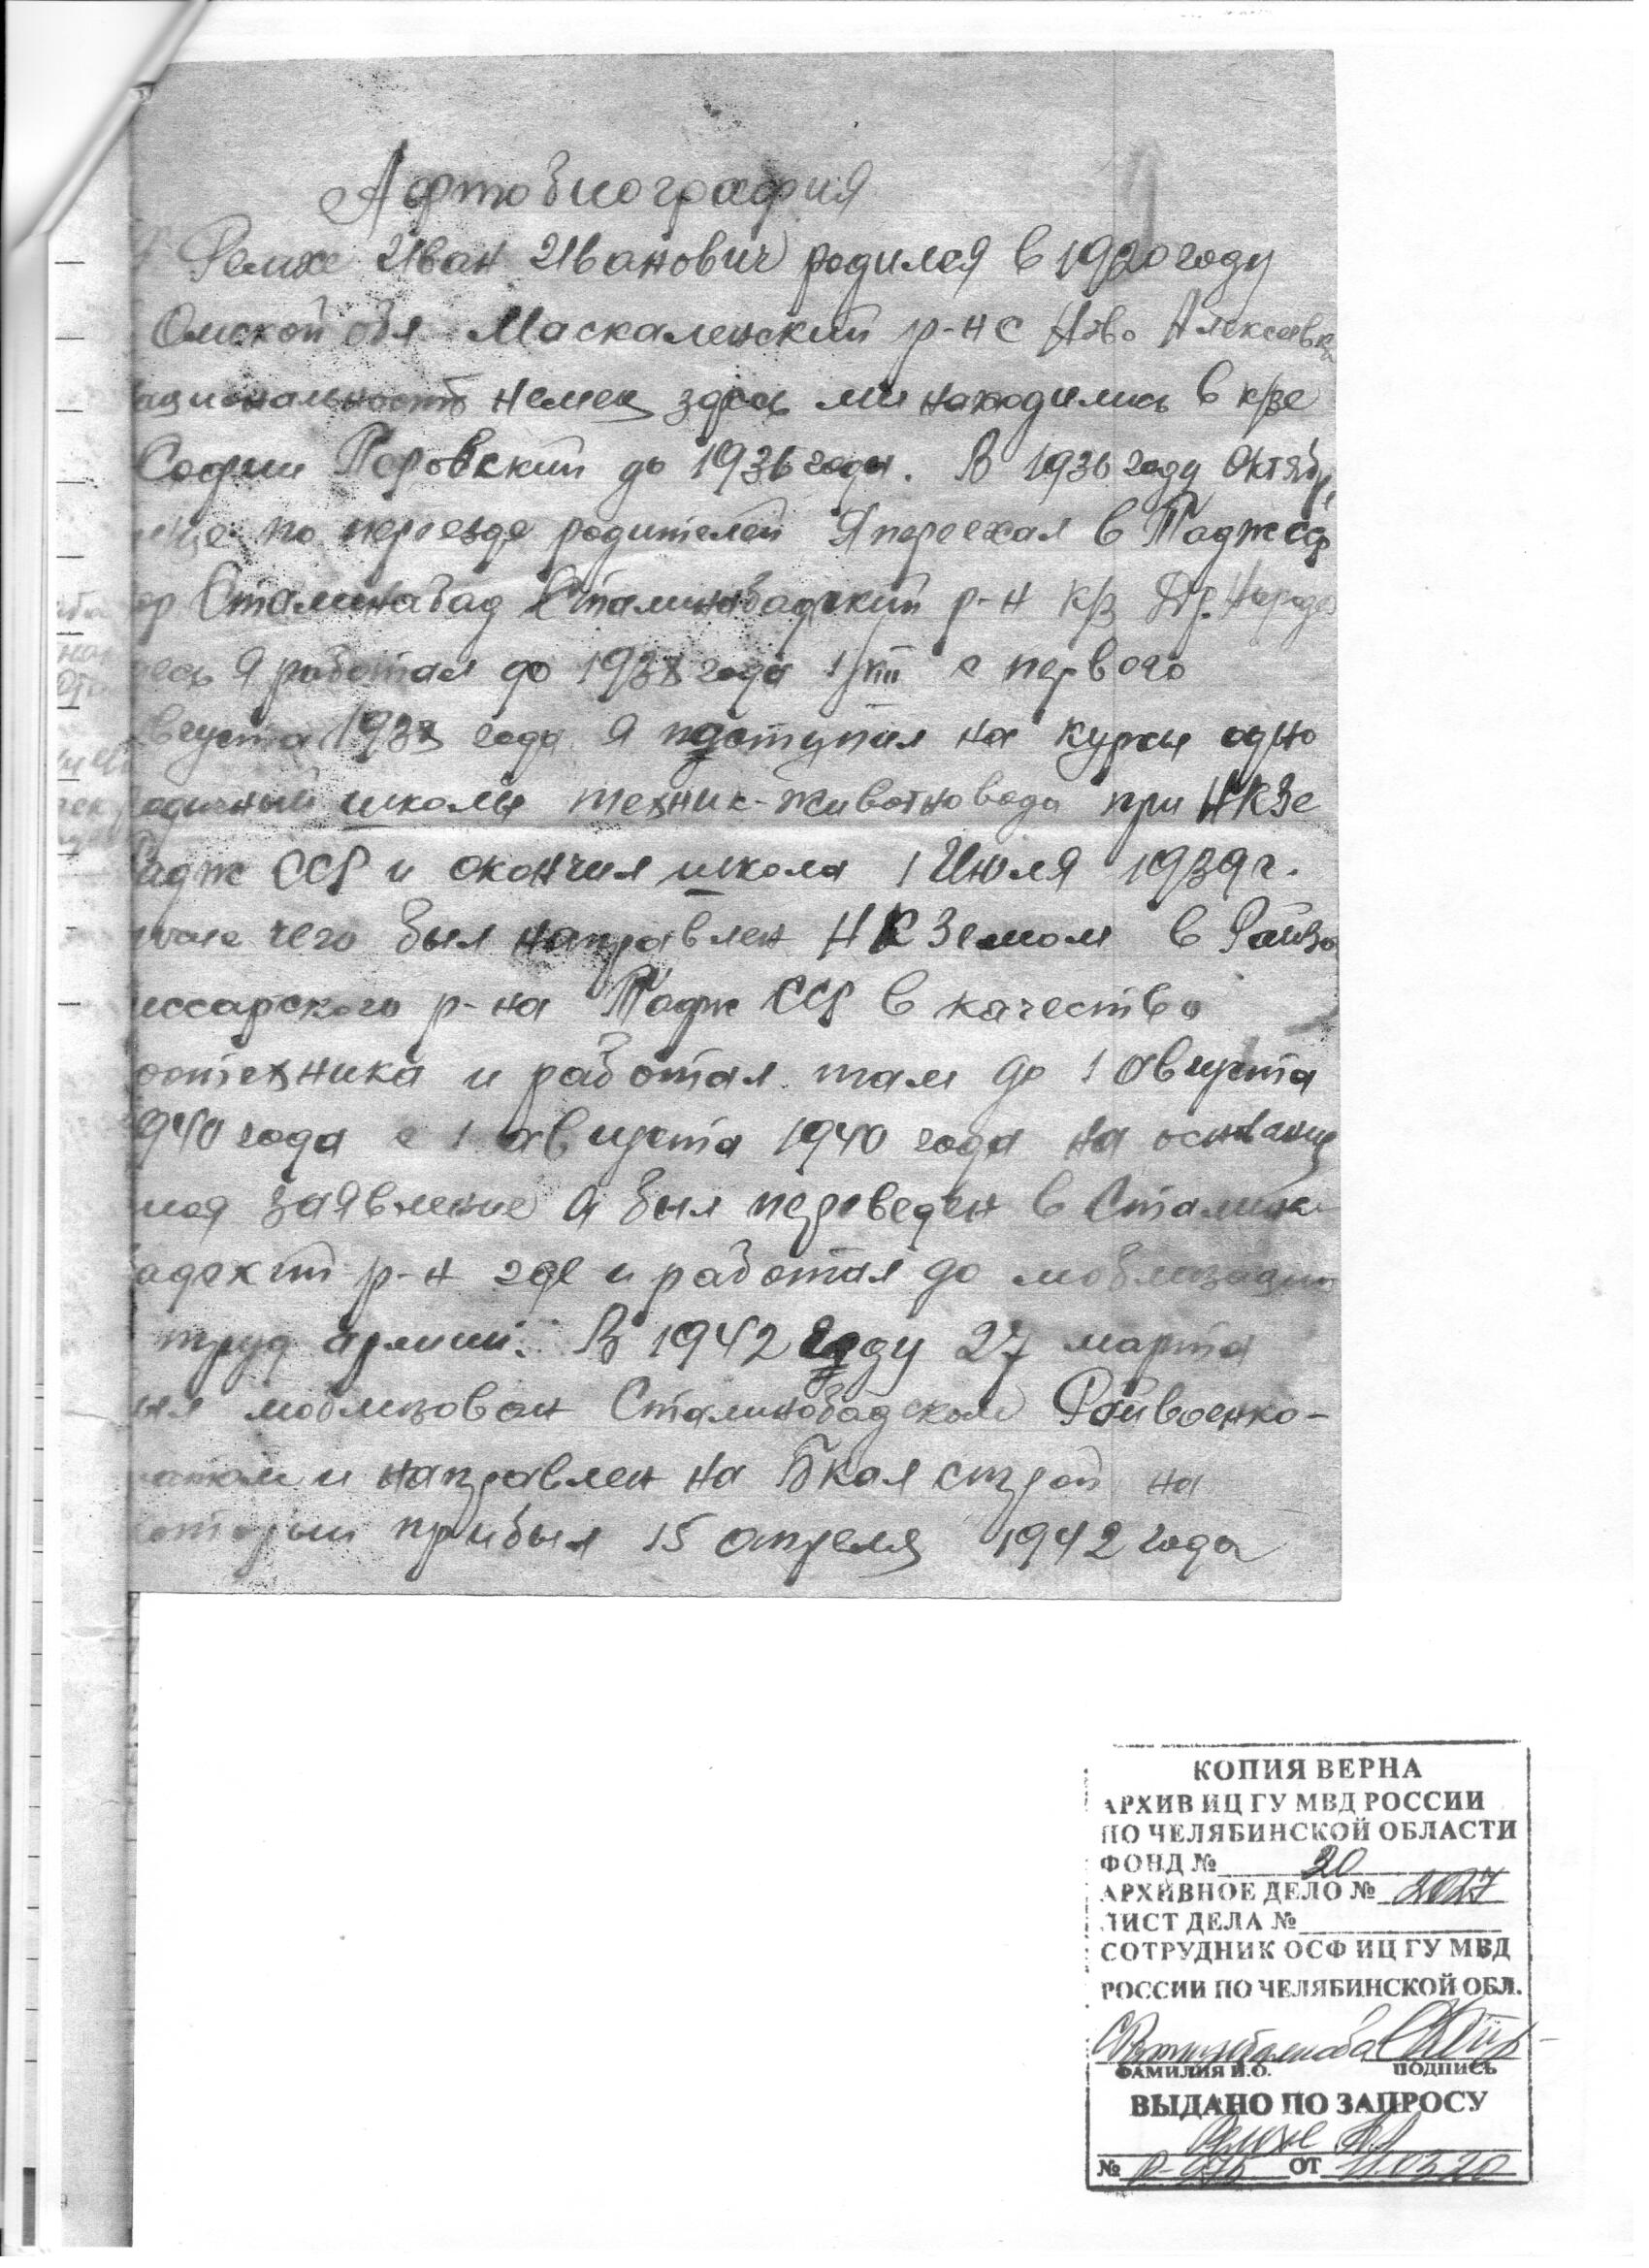 Афтобиография
Я Ремхе Иван Иванович родился в 1920 году
Омской обл Маскаленский р-н с Ново Алексеевка
ациональность немец здесь ми находились в к/зе
Софии Перовский до 1936 года. В 1936 году Октябр
по переезде родителей Я переехал в Таджсср
ор Сталинабад Сталинабадский р-н к/з Др. Народ
десь Я работал до 193 года с первого
вгуста 193 года Я поступил на курсы одно
одичный школы техник-животновода при НКЗе
адж ССР и окончил школа 1 Июля 1939 г.
чего был направлен НКЗемом в Райзо
иссарского р-на Тадж ССР в качество
оотехника и работал там до 1 августа
940 года с 1 августа 1940 года на основание
моя заявление Я был переведен в Сталина
адский р-н где и работал до моблизации
труд армии. В 1942 году 27 марта
ыл моблизован Сталинобадском Райвоенко-
атом и направлен на Бкал строй на
оторый прибыл 15 апреля 1942 года
КОПИЯ ВЕРНА
АРХИВ ИЦ ГУ МВД РОССИИ
ПО ЧЕЛЯБИНСКОЙ ОБЛАСТИ
ФОНД № 20
АРХИВНОЕ ДЕЛО № 2027
ЛИСТ ДЕЛА №
СОТРУДНИК ОСФ ИЦ ГУ МВД
РОССИИ ПО ЧЕЛЯБИНСКОЙ ОБЛ.
ФАМИЛИЯ И.О. ПОДПИСЬ
ВЫДАНО ПО ЗАПРОСУ
Ремхе
№ ОТ 11.03.20